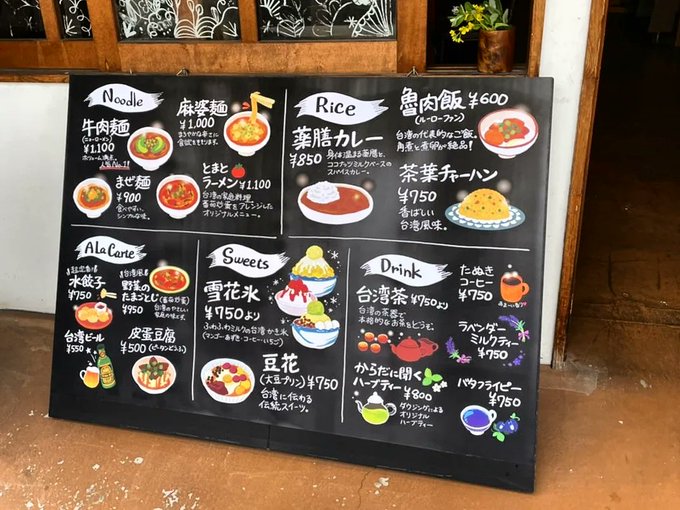 Noodle
牛肉麺
(ニューローメン)
¥1,100
ボリューム満点
人気No.1!
麻婆麺
¥1,000
まろやかな辛さに
食欲をそそります。
まぜ麺
¥900
食べやすい、
シンプルな味。
とまと
ラーメン ¥1,100
台湾の家庭料理
番茄炒蛋をアレンジした
オリジナルメニュー。
Rice
薬膳カレー
¥850
身体温まる薬膳と、
ココナッツミルクベースの
スパイスカレー。
魯肉飯 ¥600
(ルーローファン)
台湾の代表的なご飯。
角煮と煮卵が絶品!
茶葉チャーハン
¥750
香ばしい
台湾風味。
A La Carte
水餃子
¥750
台湾風
野菜の
たまごとじ
(番茄炒蛋)
¥950
台湾のやさしい
台湾ビール
¥550
皮蛋豆腐
¥500 (ピータンどうふ)
Sweets
雪花氷
¥750より
ふわふわミルクの台湾かき氷
(マンゴー・あずき・コーヒー・いちご)
豆花
(大豆プリン) ¥750
台湾に伝わる
伝統スイーツ。
Drink
台湾茶 ¥750より
台湾の茶器で
本格的なお茶をどうぞ。
からだに聞く
ハーブティー
¥800
ダウジングによる
オリジナル
ハーブティー
たぬき
コーヒー
¥750
ラベンダー
ミルクティー
¥750
バタフライピー
¥750